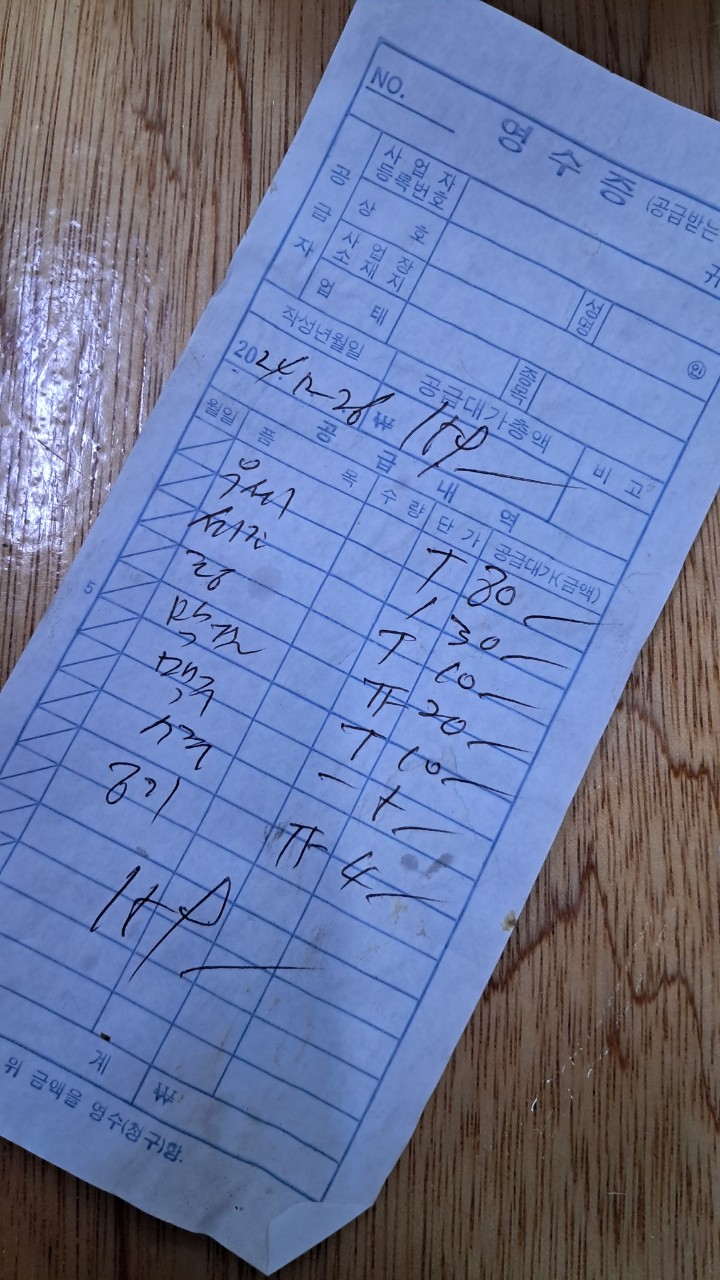 NO.
영수증 (공급받는
귀
공급자
사업자등록번호
상호 성명 인
사업장소재지
업태 종목
작성년월일 공급대가총액 비고
2024. 12-28 ₩ 159
공급내역
월일 품목 수량 단가 공급대가(금액)
T 80
30
T 10
막걸리 TF 20
맥주 T 10
5
공기 TF 4
159
계 ₩
위 금액을 영수(청구)함.